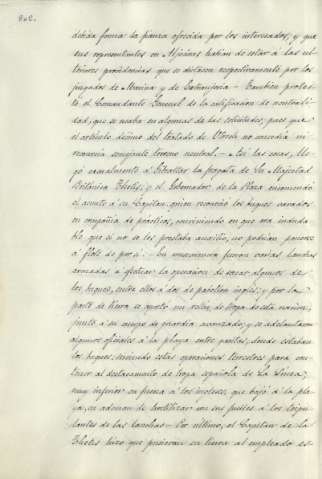 862.
debida forma la fianza ofrecida por los interesados, y que
sus representantes en Algeciras habian de estar á las ul-
teriores providencias que se dictasen respectivamente por los
juzgados de Marina y de Extranjería - Tambien protes-
tó el Comandante General de la calificacion de neutrali-
dad, que se usaba en algunas de las solicitudes, pues que
el artículo décimo del tratado de Utrech no concedia ni
reconocia semejante terreno neutral. - Así las cosas, lle-
gó casualmente á Gibraltar la fragata de Su Majestad
Británica Thetis, y el Gobernador de la Plaza encomendó
el asunto á su Capitan, quien reconoció los buques varados
en compañía de prácticos, conviniendo en que era induda-
ble que si no se les prestaba auxilio, no podrian ponerse
á flote de por sí. - En consecuencia fueron varias lanchas
armadas á efectuar la operacion de sacar algunos de
los buques, entre ellos á dos de pabellon inglés; y por la
parte de tierra se apostó un reten de tropa de esta nacion,
junto á su cuerpo de guardia avanzado, y se adelantaron
algunos oficiales á la playa entre puntas, donde estaban
los buques; sirviendo estas operaciones terrestres para con-
tener al destacamento de tropa española de La Línea,
muy inferior en fuerza á los ingleses, que bajó á la pla-
ya, en ademan de hostilizar con sus fusiles á los tripu-
lantes de las lanchas. - Por último, el Capitan de la
Thetis hizo que pusieran en tierra al empleado es-